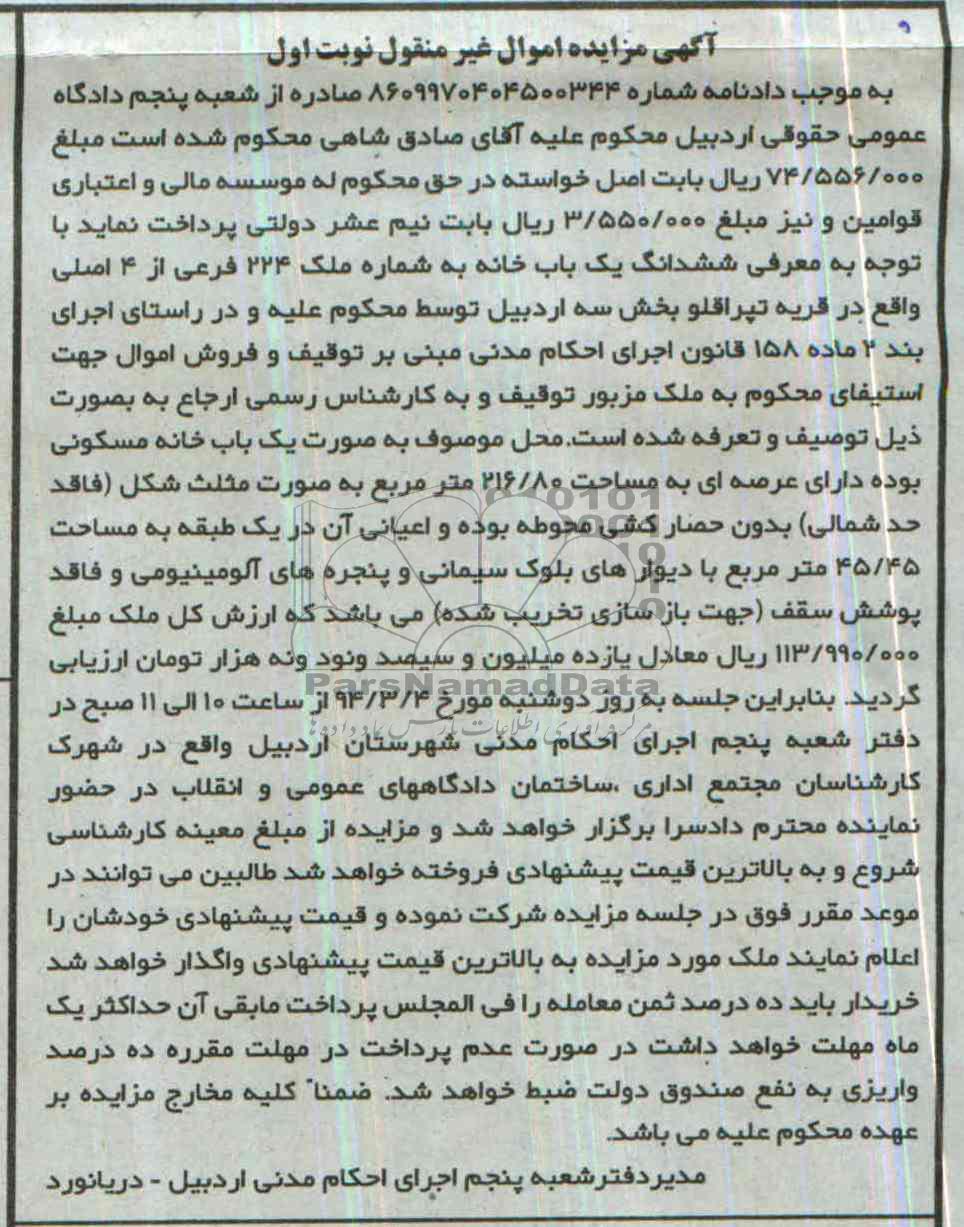 آگهی مزایده اموال غیر منقول نوبت اول
به موجب دادنامه شماره ۸۶۰۹۹۷۰۴۰۴۵۰۰۳۴۴ صادره از شعبه پنجم دادگاه
عمومی حقوقی اردبیل محکوم علیه آقای صادق شاهی محکوم شده است مبلغ
۷۴/۵۵۶/۰۰۰ ریال بابت اصل خواسته در حق محکوم له موسسه مالی و اعتباری
قوامین و نیز مبلغ ۳/۵۵۰/۰۰۰ ریال بابت نیم عشر دولتی پرداخت نماید با
توجه به معرفی ششدانگ یک باب خانه به شماره ملک ۲۲۴ فرعی از ۴ اصلی
واقع در قریه تپراقلو بخش سه اردبیل توسط محکوم علیه و در راستای اجرای
بند ۲ ماده ۱۵۸ قانون اجرای احکام مدنی مبنی بر توقیف و فروش اموال جهت
استیفای محکوم به ملک مزبور توقیف و به کارشناس رسمی ارجاع به بصورت
ذیل توصیف و تعرفه شده است.محل موصوف به صورت یک باب خانه مسکونی
بوده دارای عرصه ای به مساحت ۲۱۶/۸۰ متر مربع به صورت مثلث شکل (فاقد
حد شمالی) بدون حصار کشی محوطه بوده و اعیانی آن در یک طبقه به مساحت
۴۵/۴۵ متر مربع با دیوار های بلوک سیمانی و پنجره های آلومینیومی و فاقد
پوشش سقف (جهت باز سازی تخریب شده) می باشد که ارزش کل ملک مبلغ
۱۱۳/۹۹۰/۰۰۰ ریال معادل یازده میلیون و سیصد ونود ونه هزار تومان ارزیابی
ParsNamadData
گردید. بنابراین جلسه به روز دوشنبه مورخ ۹۴/۳/۴ از ساعت ۱۰ الی ۱۱ صبح در
دفتر شعبه پنجم اجرای احکام مدنی شهرستان اردبیل واقع در شهرک
کارشناسان مجتمع اداری ،ساختمان دادگاههای عمومی و انقلاب در حضور
نماینده محترم دادسرا برگزار خواهد شد و مزایده از مبلغ معینه کارشناسی
شروع و به بالاترین قیمت پیشنهادی فروخته خواهد شد طالبین می توانند در
موعد مقرر فوق در جلسه مزایده شرکت نموده و قیمت پیشنهادی خودشان را
اعلام نمایند ملک مورد مزایده به بالاترین قیمت پیشنهادی واگذار خواهد شد
خریدار باید ده درصد ثمن معامله را فی المجلس پرداخت مابقی آن حداکثر یک
ماه مهلت خواهد داشت در صورت عدم پرداخت در مهلت مقرره ده درصد
واریزی به نفع صندوق دولت ضبط خواهد شد. ضمناً کلیه مخارج مزایده بر
عهده محکوم علیه می باشد.
مدیردفترشعبه پنجم اجرای احکام مدنی اردبیل - دریانورد